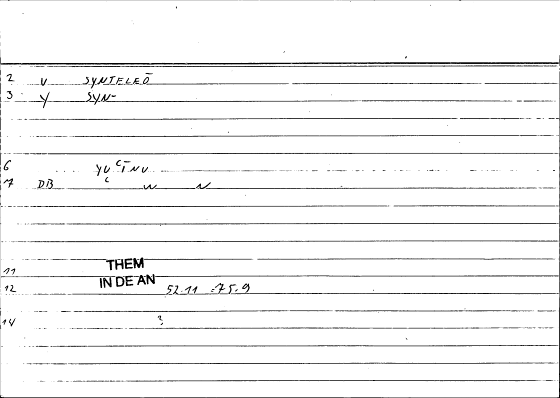 2 V SYNTELEŌ
3 Y SYN-
6 YUʿĪNU
7 DB ʿ W N
11 THEM
12 IN DE AN 52.11 :75.9
14 ?